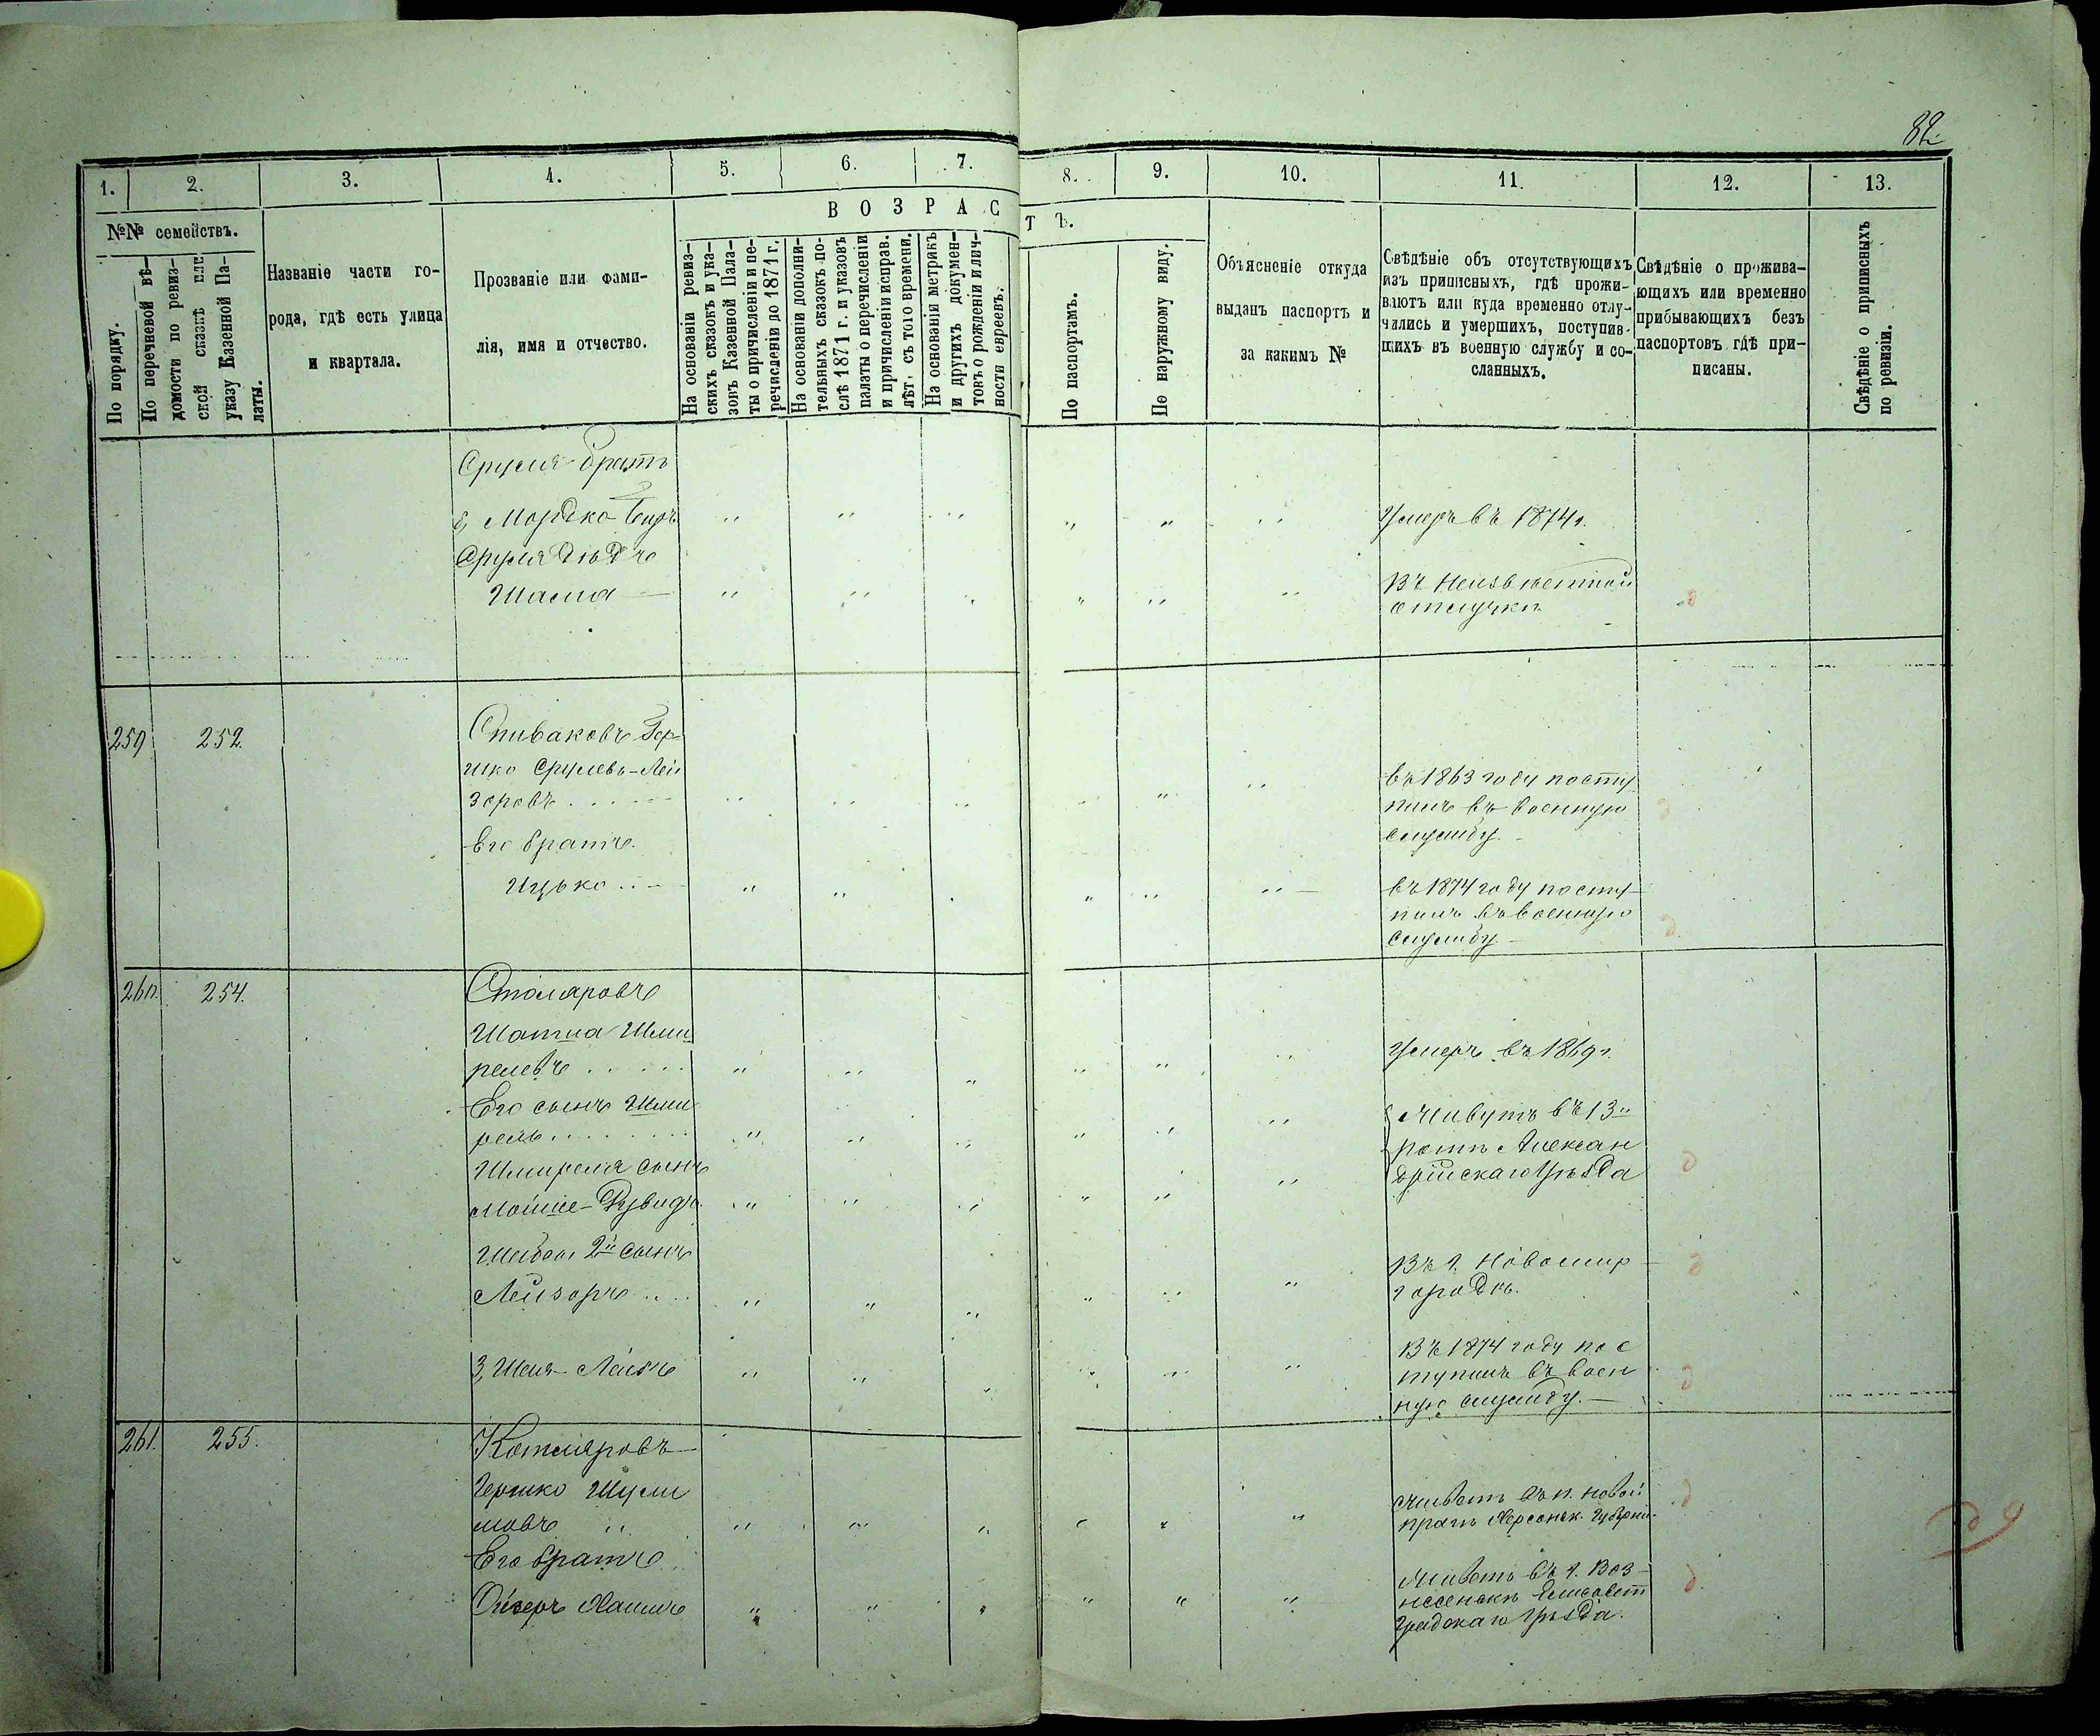 82.
1. 2. 3. 4. 5. 6. 7. 8. 9. 10. 11. 12. 13.
В О З Р А С Т Ъ.
№№ семействъ.
По порядку.
По перечневой вѣ-
домости по ревиз-
ской сказкѣ или
указу Казенной Па-
латы.
Названіе части го-
рода, гдѣ есть улица
и квартала.
Прозваніе или фами-
лія, имя и отчество.
На основаніи ревиз-
скихъ сказокъ и ука-
зовъ Казенной Пала-
ты о причисленіи и пе-
речисленіи до 1871 г.
На основаніи дополни-
тельныхъ сказокъ по-
слѣ 1871 г. и указовъ
палаты о перечисленіи
и причисленіи исправ.
лѣт. съ того времени.
На основаніи метрикъ
и другихъ докумен-
товъ о рожденіи и лич-
ности евреевъ.
По паспортамъ.
По наружному виду.
Объясненіе откуда
выданъ паспортъ и
за какимъ №
Свѣдѣніе объ отсутствующихъ
изъ приписныхъ, гдѣ прожи-
ваютъ или куда временно отлу-
чились и умершихъ, поступив-
шихъ въ военную службу и со-
сланныхъ.
Свѣдѣніе о прожива-
ющихъ или временно
прибывающихъ безъ
паспортовъ гдѣ при-
писаны.
Свѣдѣніе о приписныхъ
по ревизіи.
Сруля братъ
Мордко
Умеръ въ 1874 г.
Сруля дядя
Шасна
Въ неизвѣстной
отлучкѣ
259 252.
Спиваковъ Гер-
шко Срулевъ-Лей
зоровъ
въ 1863 году посту
пилъ въ военную
службу.
Его братъ.
Ицько
въ 1874 году посту-
пилъ въ военную
службу
260. 254.
Столяровъ
Шатна Шми
релевъ
Умеръ въ 1869 г.
Его сынъ Шми
рель
Живутъ въ 13й
ротѣ Алексан
дрійскаго Уѣзда
Шмиреля сынъ
Мойше-
2й сынъ
Лейзоръ
Въ г. Новомир
городкѣ.
3, Шая-Лейбъ
Въ 1874 году пос
тупилъ въ воен
ную службу.
261. 255.
Котляровъ
Гершко Шули
мовъ
Живетъ въ п. Новой
прагѣ Херсонск. Губерніи
Его братъ
Ойзеръ Хаимъ
Живетъ въ г. Воз-
несенскѣ Елисавет
градскаго Уѣзда.